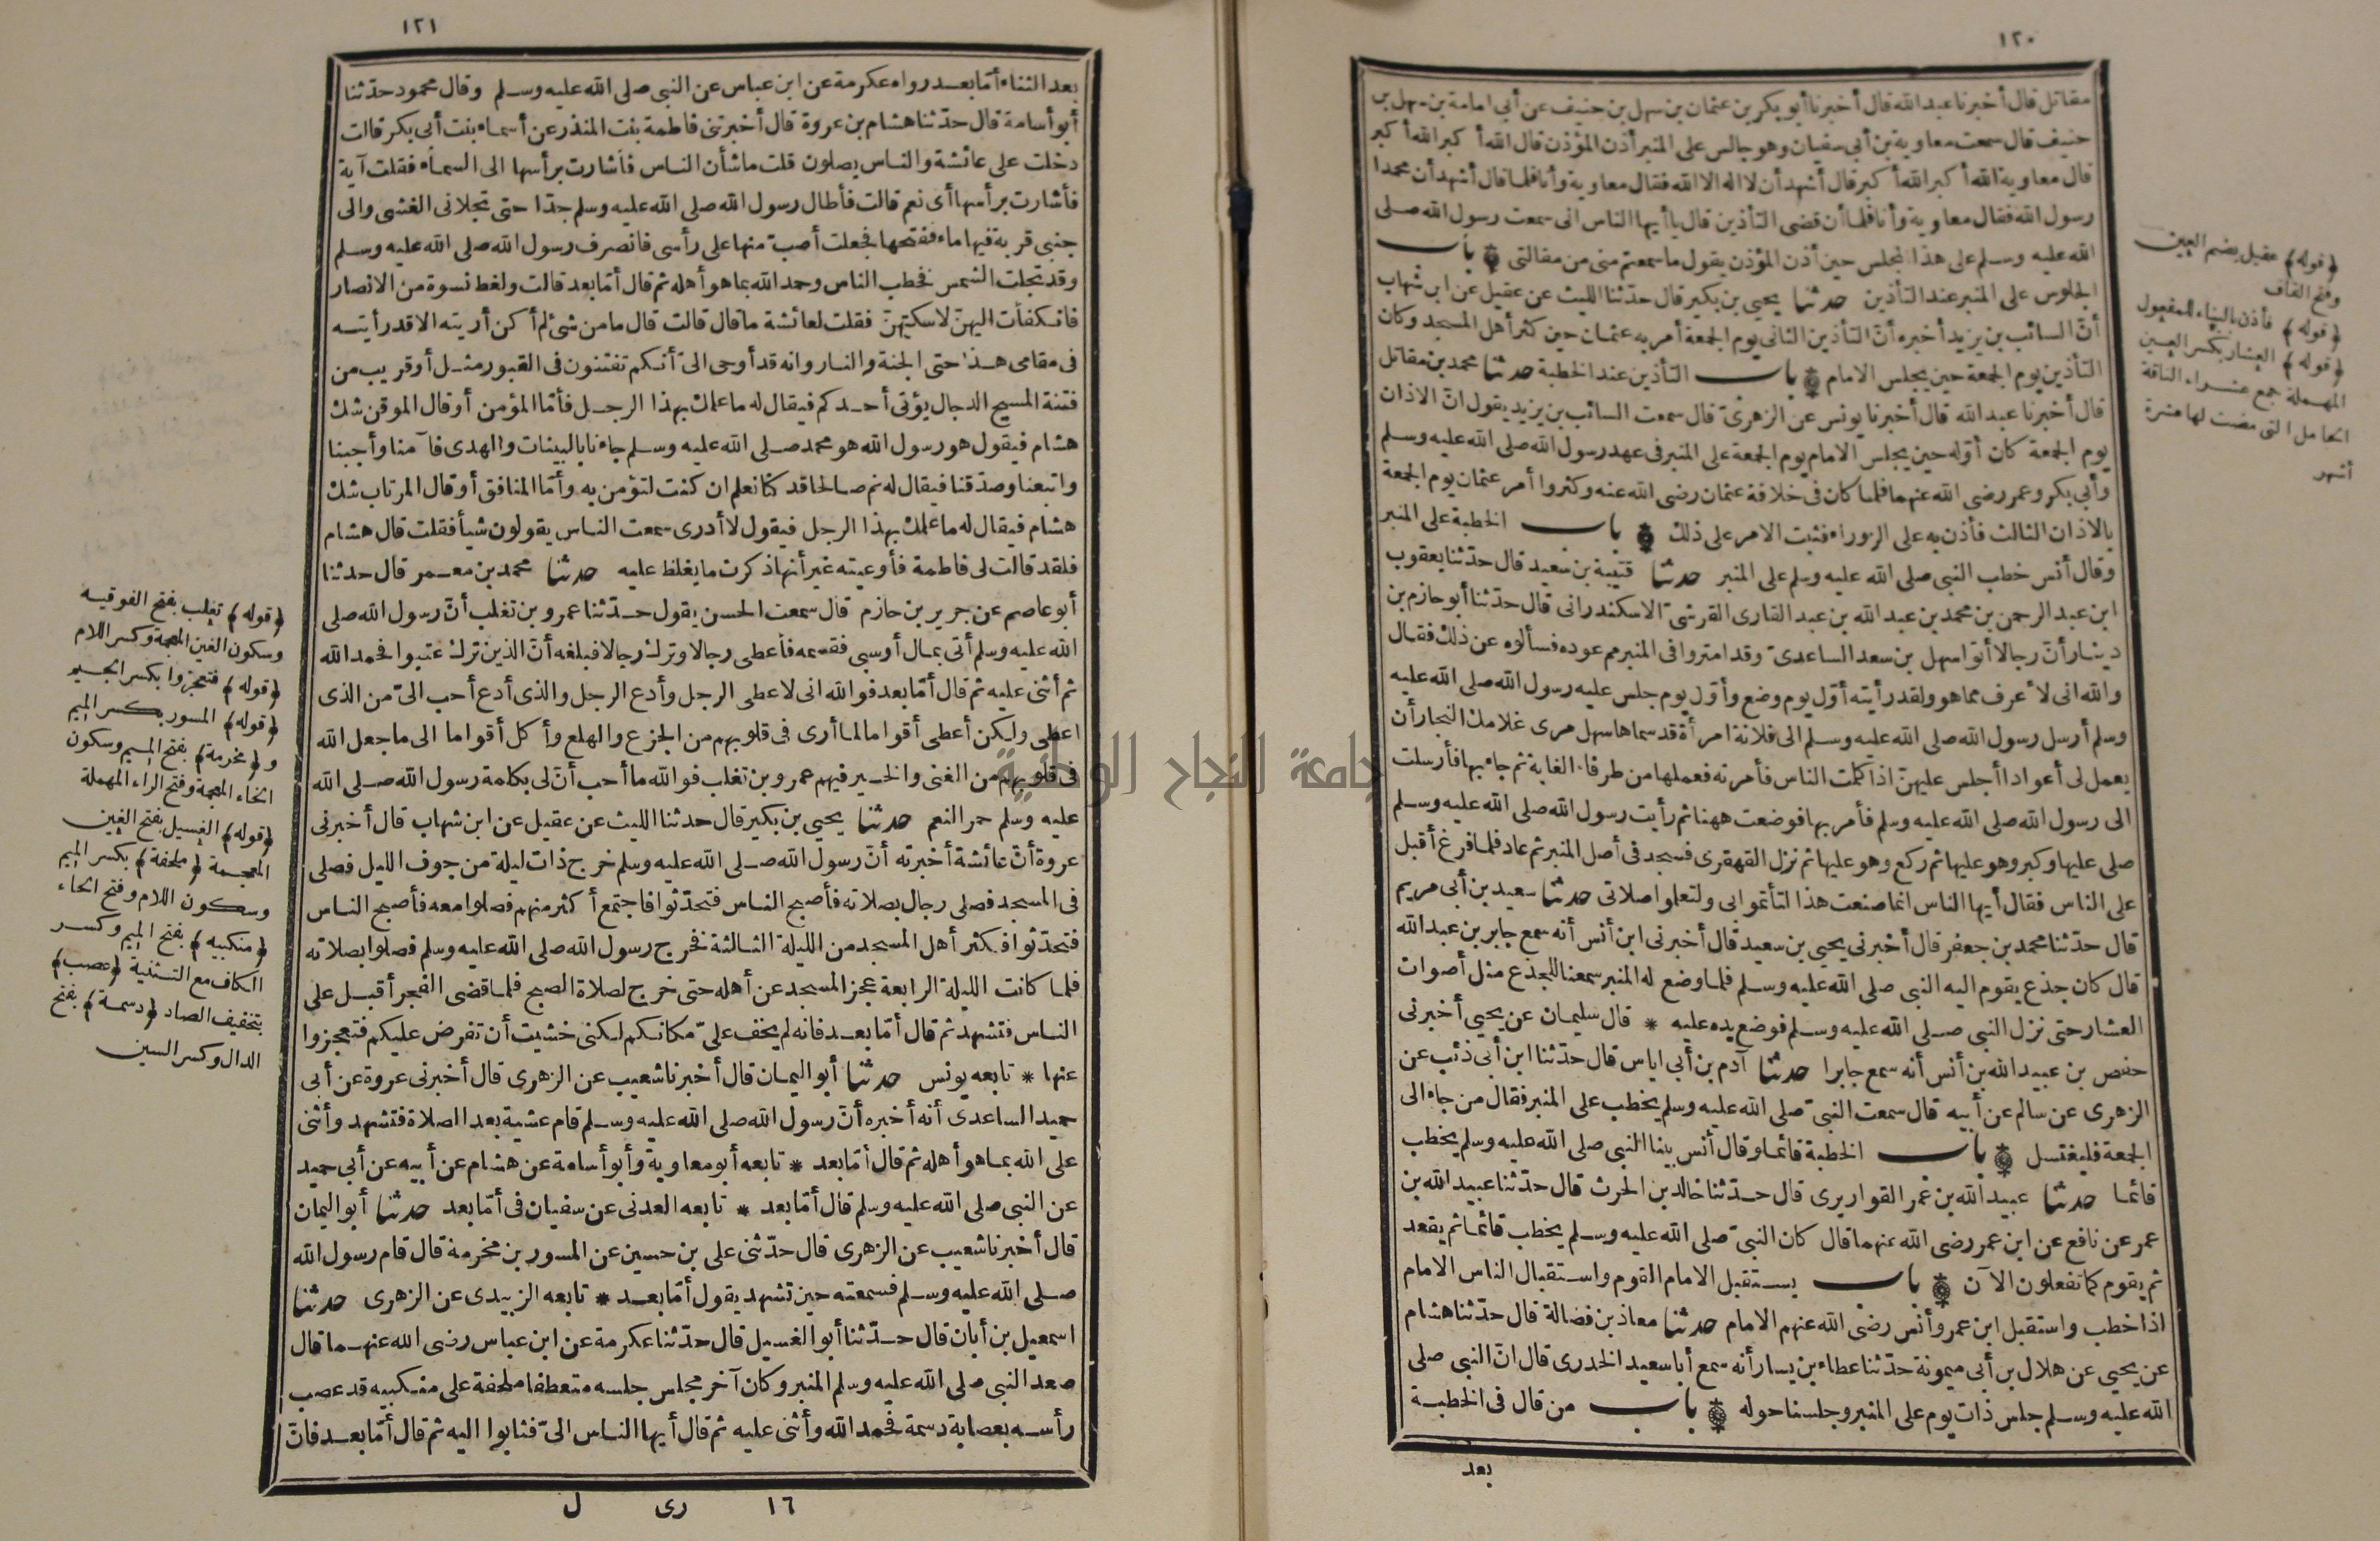 ١٢٠
مقاتل قال أخبرنا عبد الله قال أخبرنا أبو بكر بن عثمان بن سهل بن حنيف عن أبي امامة بن سهل بن
حنيف قال سمعت معاوية بن أبي سفيان وهو جالس على المنبر أذن المؤذن قال الله أكبر الله أكبر
قال معاوية الله أكبر الله أكبر قال أشهد أن لا اله الا الله فقال معاوية وأنا فلما قال أشهد أن محمدا
رسول الله فقال معاوية وأنا فلما أن قضى التأذين قال يا أيها الناس انى سمعت رسول الله صلى
الله عليه وسلم على هذا المجلس حين أذن المؤذن يقول ما سمعتم منى من مقالتى باب
الجلوس على المنبر عند التأذين حدثنا يحيى بن بكير قال حدّثنا الليث عن عقيل عن ابن شهاب
أنّ السائب بن يزيد أخبره أنّ التأذين الثانى يوم الجمعة أمر به عثمان حين كثر أهل المسجد وكان
التأذين يوم الجمعة حين يجلس الامام باب التأذين عند الخطبة حدثنا محمد بن مقاتل
قال أخبرنا عبد الله قال أخبرنا يونس عن الزهرىّ قال سمعت السائب بن يزيد يقول انّ الاذان
يوم الجمعة كان أوّله حين يجلس الامام يوم الجمعة على المنبر فى عهد رسول الله صلى الله عليه وسلم
وأبى بكر وعمر رضى الله عنهما فلما كان فى خلافة عثمان رضى الله عنه وكثروا أمر عثمان يوم الجمعة
بالاذان الثالث فأذن به على الزوراء فثبت الامر على ذلك باب الخطبة على المنبر
وقال أنس خطب النبى صلى الله عليه وسلم على المنبر حدثنا قتيبة بن سعيد قال حدّثنا يعقوب
ابن عبد الرحمن بن محمد بن عبد الله بن عبد القارى القرشىّ الاسكندرانى قال حدّثنا أبو حازم بن
دينار أنّ رجالا أتوا سهل بن سعد الساعدىّ وقد امتروا فى المنبر مم عوده فسألوه عن ذلك فقال
والله انى لا ٔعرف مما هو ولقد رأيته أوّل يوم وضع وأوّل يوم جلس عليه رسول الله صلى الله عليه
وسلم أرسل رسول الله صلى الله عليه وسلم الى فلانة امرأة قد سماها سهل مرى غلامك النجار أن
يعمل لى أعوادا أجلس عليهنّ اذا كلمت الناس فأمرته فعملها من طرفاء الغابة ثم جاء بها فأرسلت
الى رسول الله صلى الله عليه وسلم فأمر بها فوضعت ههنا ثم رأيت رسول الله صلى الله عليه وسلم
صلى عليها وكبر وهو عليها ثم ركع وهو عليها ثم نزل القهقرى فسجد فى أصل المنبر ثم عاد فلما فرغ أقبل
على الناس فقال أيها الناس انما صنعت هذا لتأتموا بى ولتعلموا صلاتى حدثنا سعيد بن أبى مريم
قال حدّثنا محمد بن جعفر قال أخبرنى يحيى بن سعيد قال أخبرنى ابن أنس أنه سمع جابر بن عبد الله
قال كان جذع يقوم اليه النبى صلى الله عليه وسلم فلما وضع له المنبر سمعنا للجذع مثل أصوات
العشار حتى نزل النبى صلى الله عليه وسلم فوضع يده عليه * قال سليمان عن يحيى أخبرنى
حفص بن عبيد الله بن أنس أنه سمع جابرا حدثنا آدم بن أبى اياس قال حدّثنا ابن أبى ذئب عن
الزهرى عن سالم عن أبيه قال سمعت النبىّ صلى الله عليه وسلم يخطب على المنبر فقال من جاء الى
الجمعة فليغتسل باب الخطبة قائما وقال أنس بينا النبى صلى الله عليه وسلم يخطب
قائما حدثنا عبيد الله بن عمر القواريرى قال حدّثنا خالد بن الحرث قال حدّثنا عبيد الله بن
عمر عن نافع عن ابن عمر رضى الله عنهما قال كان النبىّ صلى الله عليه وسلم يخطب قائما ثم يقعد
ثم يقوم كما تفعلون الا آن باب يستقبل الامام القوم واستقبال الناس الامام
اذا خطب واستقبل ابن عمر وأنس رضى الله عنهم الامام حدثنا معاذ بن فضالة قال حدّثنا هشام
عن يحيى عن هلال بن أبى ميمونة حدّثنا عطاء بن يسار أنه سمع أبا سعيد الخدرى قال انّ النبى صلى
الله عليه وسلم جلس ذات يوم على المنبر وجلسنا حوله باب من قال فى الخطبة
بعد
﴿قوله﴾ عقيل بضم العين
وفتح القاف
﴿قوله﴾ فأذن بالبناء للمفعول
﴿قوله﴾ العشار بكسر العين
المهملة جمع عشراء الناقة
الحامل التى مضت لها عشرة
أشهر
١٢١
بعد الثناء أمّا بعد رواه عكرمة عن ابن عباس عن النبى صلى الله عليه وسلم وقال محمود حدّثنا
أبو أسامة قال حدّثنا هشام بن عروة قال أخبرتنى فاطمة بنت المنذر عن أسماء بنت أبى بكر قالت
دخلت على عائشة والناس يصلون قلت ما شأن الناس فأشارت برأسها الى السماء فقلت آية
فأشارت برأسها أى نعم قالت فأطال رسول الله صلى الله عليه وسلم جدّا حتى تجلانى الغشى والى
جنبى قربة فيها ماء ففتحتها فجعلت أصبّ منها على رأسى فانصرف رسول الله صلى الله عليه وسلم
وقد تجلت الشمس فخطب الناس وحمد الله بما هو أهله ثم قال أمّا بعد قالت ولغط نسوة من الانصار
فانكفأت اليهنّ لاسكتهنّ فقلت لعائشة ما قال قالت قال ما من شئ لم أكن أريته الا قد رأيته
فى مقامى هذا حتى الجنة والنار وانه قد أوحى الىّ أنكم تفتنون فى القبور مثل أو قريب من
فتنة المسيح الدجال يؤتى أحدكم فيقال له ما علمك بهذا الرجل فأمّا المؤمن أو قال الموقن شك
هشام فيقول هو رسول الله هو محمد صلى الله عليه وسلم جاءنا بالبينات والهدى فا منا وأجبنا
واتبعنا وصدّقنا فيقال له نم صالحا قد كنا نعلم ان كنت لتؤمن به وأمّا المنافق أو قال المرتاب شك
هشام فيقال له ما علمك بهذا الرجل فيقول لا أدرى سمعت الناس يقولون شيأ فقلت قال هشام
فلقد قالت لى فاطمة فأوعيته غير أنها ذكرت ما يغلظ عليه حدثنا محمد بن معمر قال حدثنا
أبو عاصم عن جرير بن حازم قال سمعت الحسن يقول حدّثنا عمرو بن تغلب أنّ رسول الله صلى
الله عليه وسلم أتى بمال أو سبى فقسمه فأعطى رجالا وترك رجالا فبلغه أنّ الذين ترك عتبوا فحمد الله
ثم أثنى عليه ثم قال أمّا بعد فو الله انى لاعطى الرجل وأدع الرجل والذى أدع أحب الىّ من الذى
اعطى ولكن أعطى أقواما لما أرى فى قلوبهم من الجزع والهلع وأكل أقواما الى ما جعل الله
فى قلوبهم من الغنى والخير فيهم عمرو بن تغلب فو الله ما أحب أنّ لى بكلمة رسول الله صلى الله
عليه وسلم حمر النعم حدثنا يحيى بن بكير قال حدثنا الليث عن عقيل عن ابن شهاب قال أخبرنى
عروة أنّ عائشة أخبرته أنّ رسول الله صلى الله عليه وسلم خرج ذات ليلة من جوف الليل فصلى
فى المسجد فصلى رجال بصلاته فأصبح الناس فتحدّثوا فاجتمع أكثر منهم فصلوا معه فأصبح الناس
فتحدّثوا فكثر أهل المسجد من الليلة الثالثة فخرج رسول الله صلى الله عليه وسلم فصلوا بصلاته
فلما كانت الليلة الرابعة عجز المسجد عن أهله حتى خرج لصلاة الصبح فلما قضى الفجر أقبل على
الناس فتشهد ثم قال أمّا بعد فانه لم يخف علىّ مكانكم لكنى خشيت أن تفرض عليكم فتعجزوا
عنها * تابعه يونس حدثنا أبو اليمان قال أخبرنا شعيب عن الزهرى قال أخبرنى عروة عن أبى
حميد الساعدى أنه أخبره أنّ رسول الله صلى الله عليه وسلم قام عشية بعد الصلاة فتشهد وأثنى
على الله بما هو أهله ثم قال أمّا بعد * تابعه أبو معاوية وأبو أسامة عن هشام عن أبيه عن أبى حميد
عن النبى صلى الله عليه وسلم قال أمّا بعد * تابعه العدنى عن سفيان فى أمّا بعد حدثنا أبو اليمان
قال أخبرنا شعيب عن الزهرى قال حدّثنى على بن حسين عن المسور بن مخرمة قال قام رسول الله
صلى الله عليه وسلم فسمعته حين تشهد يقول أمّا بعد * تابعه الزبيدى عن الزهرى حدثنا
اسمعيل بن أبان قال حدّثنا أبو الغسيل قال حدّثنا عكرمة عن ابن عباس رضى الله عنهما قال
صعد النبى صلى الله عليه وسلم المنبر وكان آخر مجلس جلسه متعطفا ملحفة على منكبيه قد عصب
رأسه بعصابة دسمة فحمد الله وأثنى عليه ثم قال أيها الناس الىّ فثابوا اليه ثم قال أمّا بعد فانّ
١٦ رى ل
﴿قوله﴾ تغلب بفتح الفوقيه
وسكون الغين المعجمة وكسر اللام
﴿قوله﴾ فتعجزوا بكسر الجيم
﴿قوله﴾ المسور بكسر الميم
و﴿مخرمة﴾ بفتح الميم وسكون
الخاء المعجمة وفتح الراء المهملة
﴿قوله﴾ الغسيل بفتح الغين
المعجمة ﴿ملحفة﴾ بكسر الميم
وسكون اللام وفتح الحاء
﴿منكبيه﴾ بفتح الميم وكسر
الكاف مع التثنية ﴿عصب﴾
بتخفيف الصاد ﴿دسمة﴾ بفتح
الدال وكسر السين
جامعة النجاح الوطنية